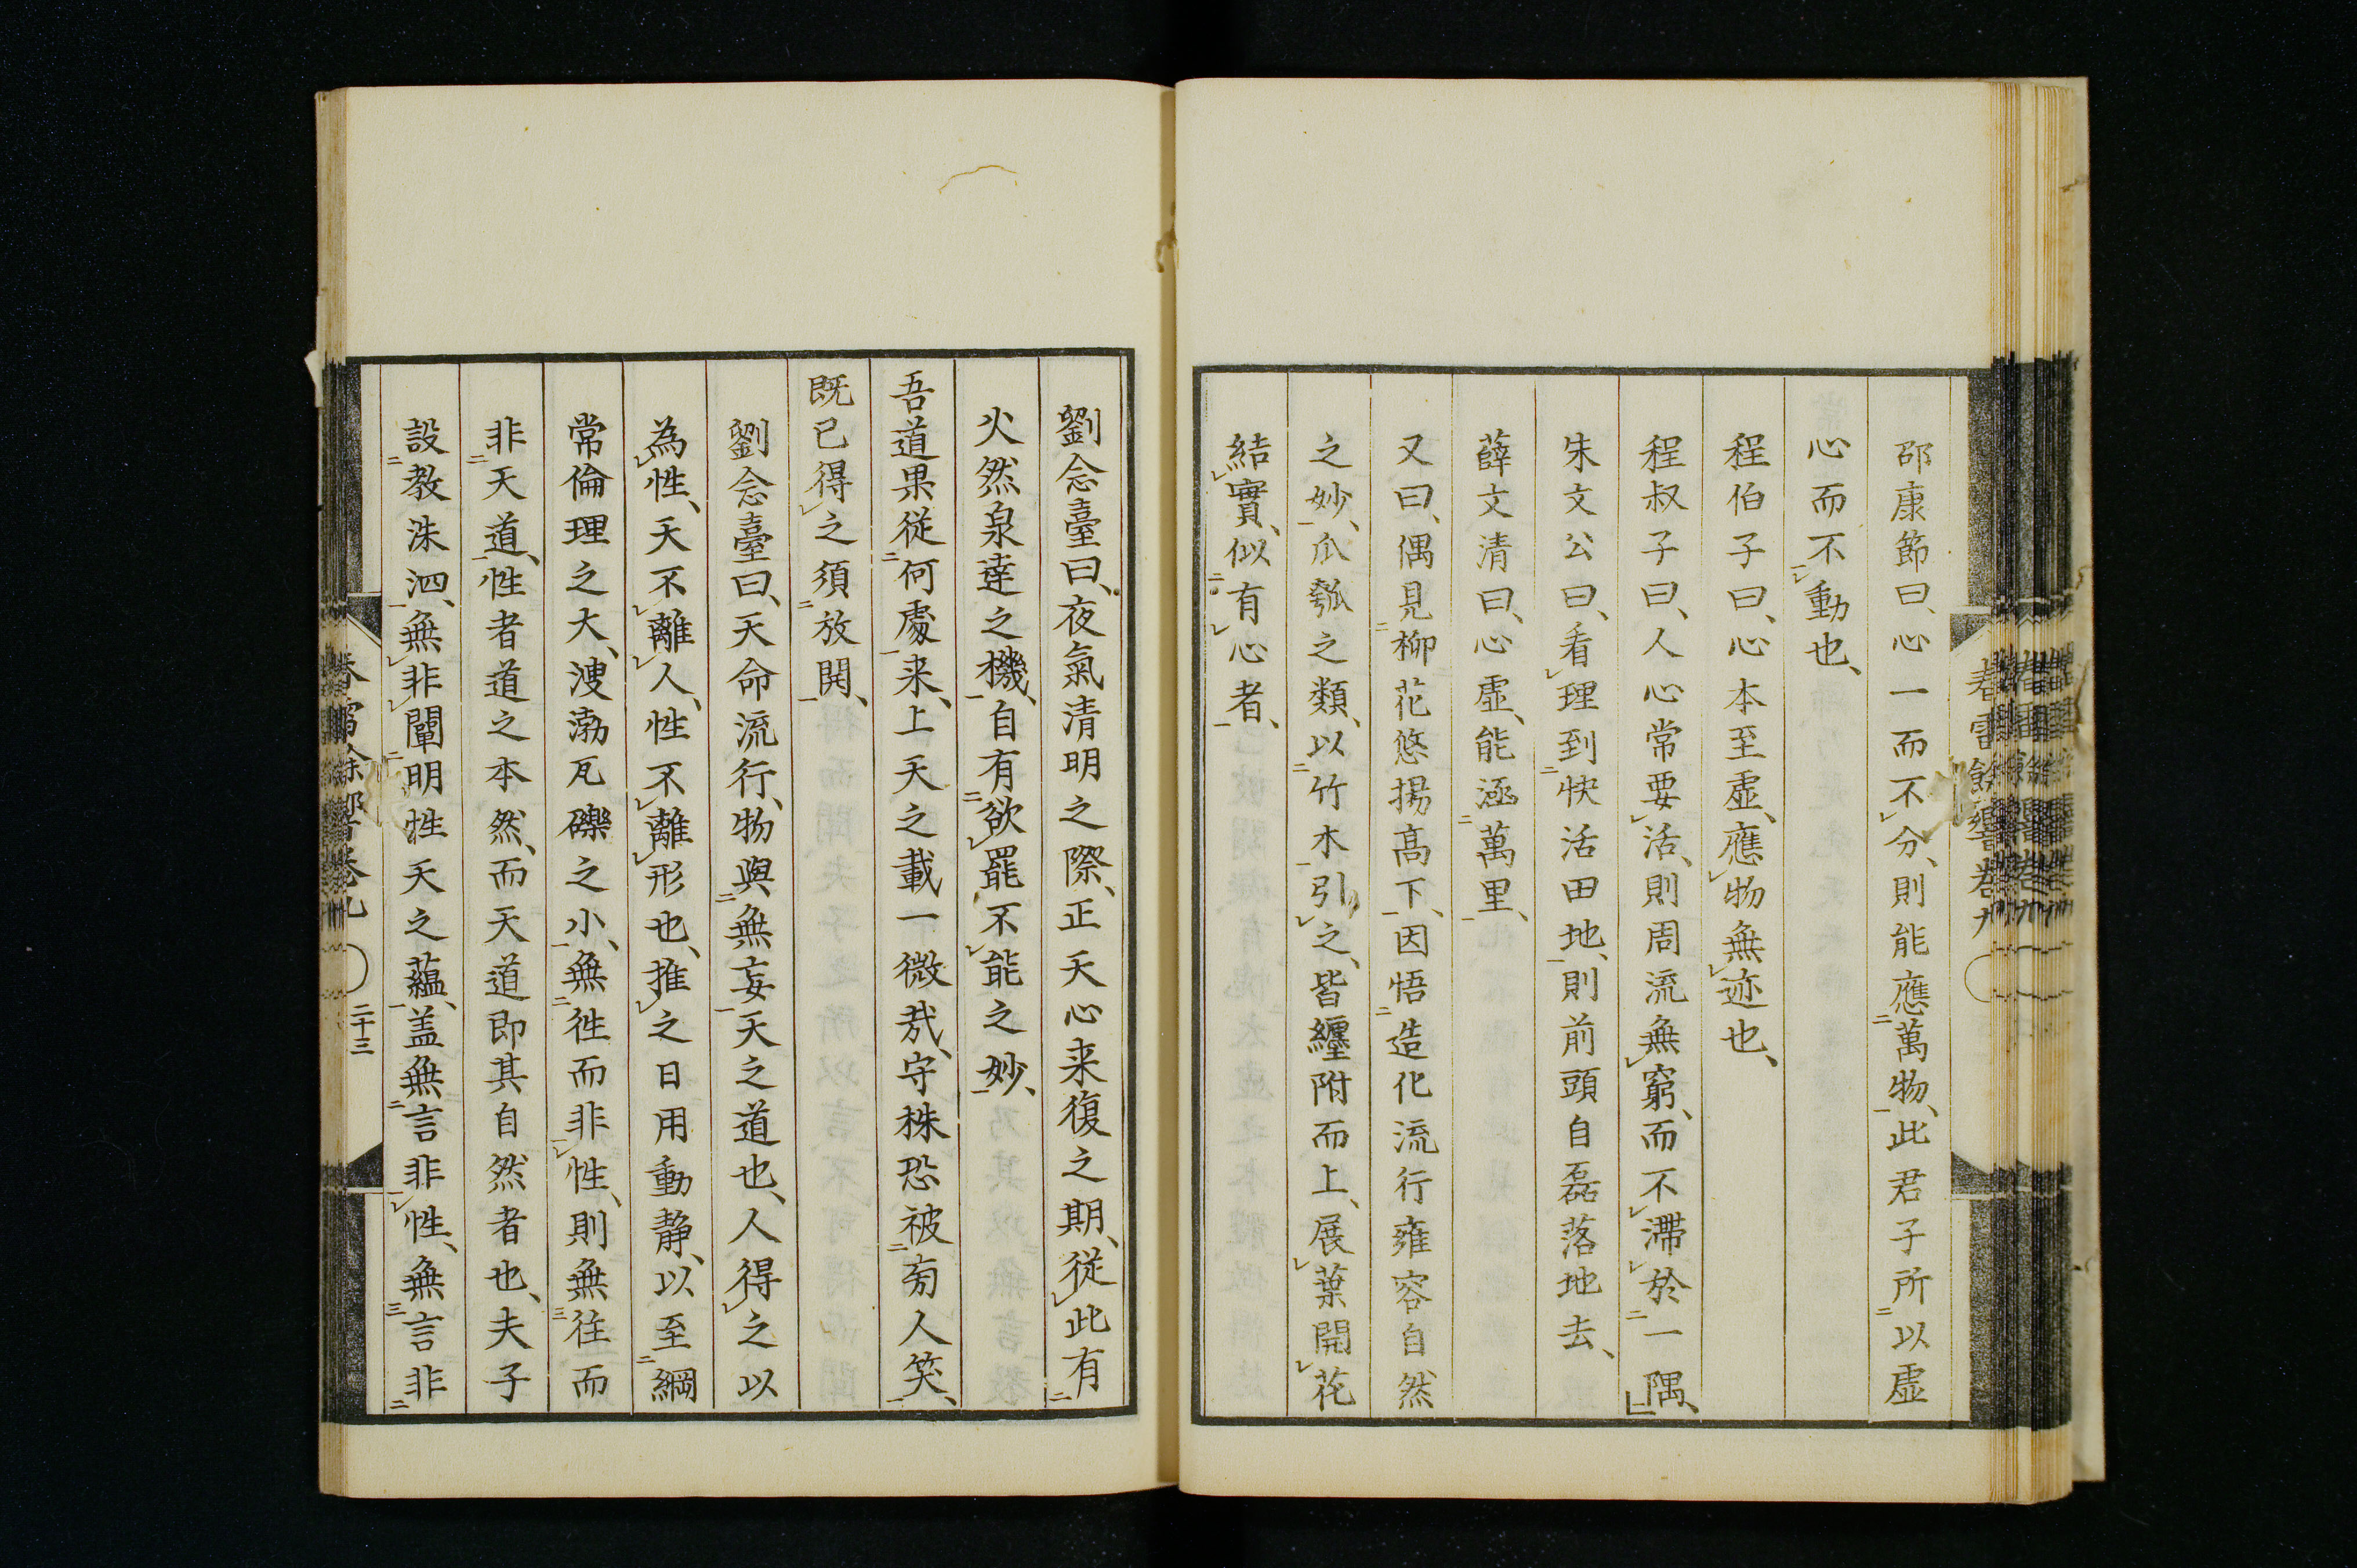 邵康節曰、心一而不分、則能應萬物、此君子所以虛
心而不動也、
程伯子曰、心本至虛、應物無迹也、
程叔子曰、人心常要活、則周流無窮、而不滯於一隅、
朱文公曰、看理到快活田地、則前頭自磊落地去、
薛文清曰、心虛、能涵萬里、
又曰、偶見柳花悠揚高下、因悟造化流行雍容自然
之妙、瓜瓠之類、以竹木引之、皆纏附而上、展葉開花
結實、似有心者、
劉念臺曰、夜氣清明之際、正天心来復之期、從此有
火然泉達之機、自有欲罷不能之妙、
吾道果從何處来、上天之載一微哉、守株恐被旁人笑、
既已得之須放開、
劉念臺曰、天命流行、物與無妄天之道也、人得之以
為性、天不離人、性不離形也、推之日用動静、以至綱
常倫理之大、溲渤瓦礫之小、無徃而非性、則無往而
非天道、性者道之本然、而天道即其自然者也、夫子
設教洙泗、無非闡明性天之蘊、盖無言非性、無言非
春雷餘響卷九
二十三